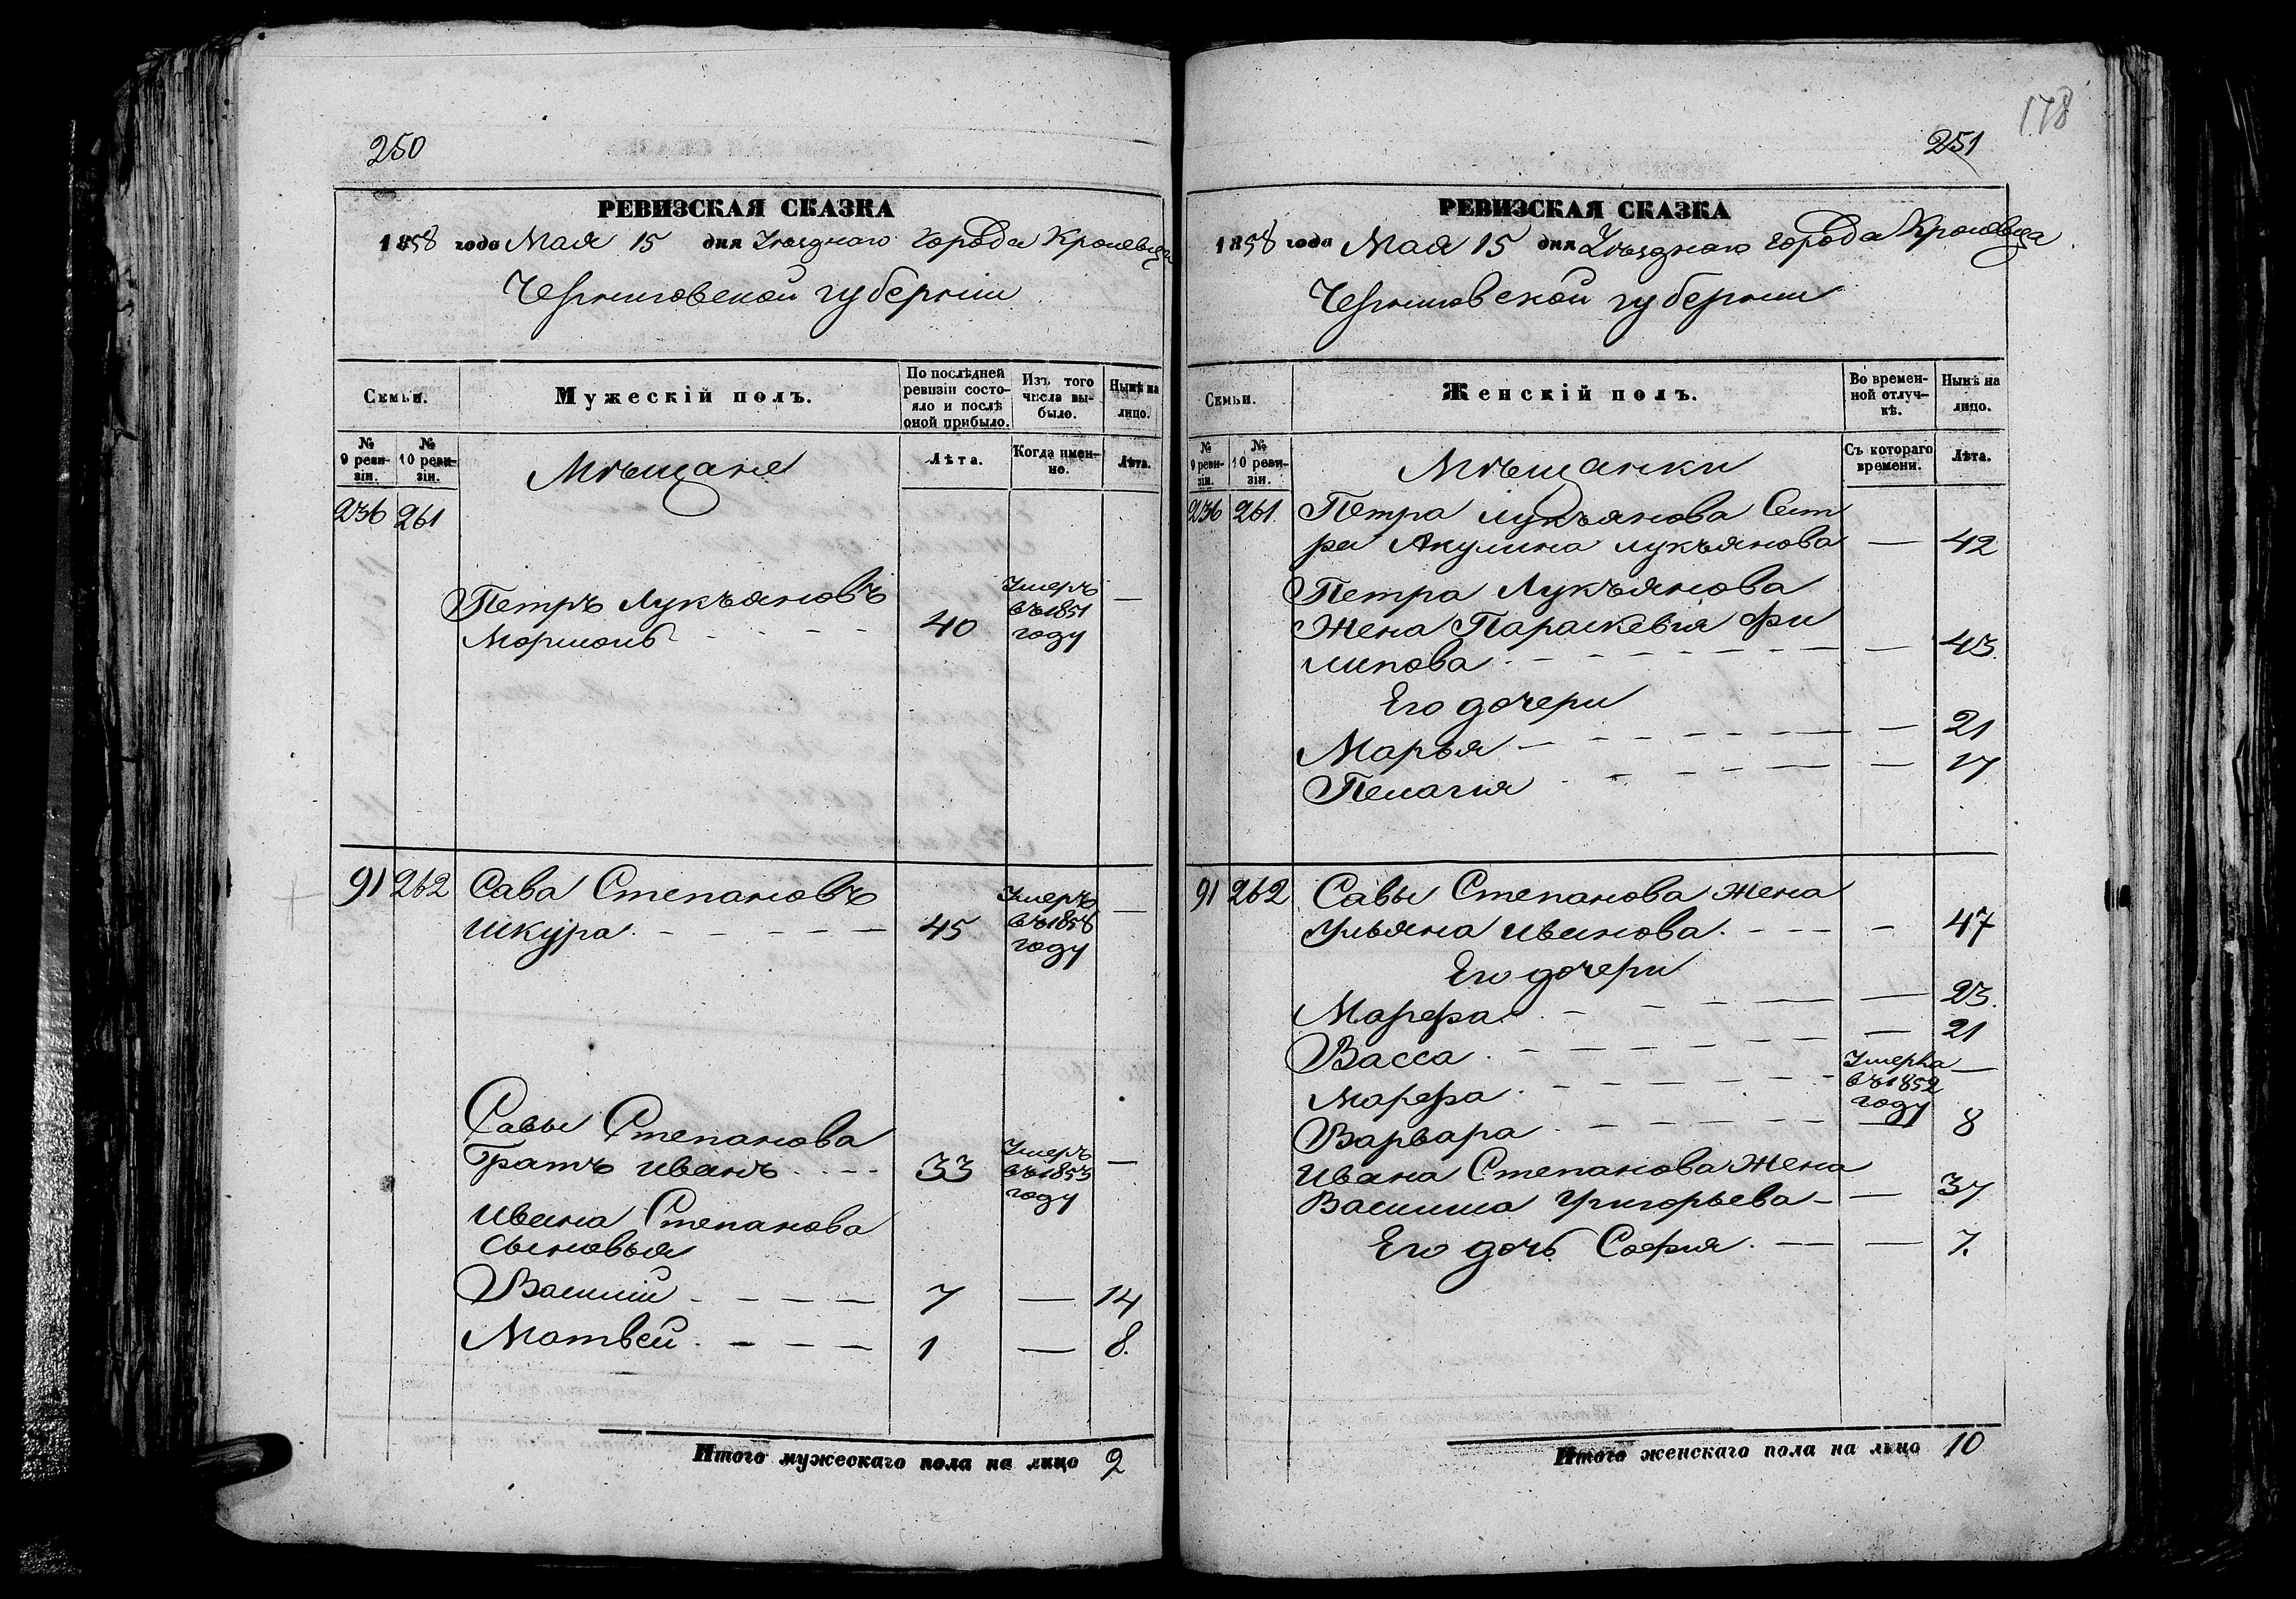 250
РЕВИЗСКАЯ СКАЗКА
1858 года Мая 15 дня Уѣзднаго города Кролевца
Черниговской губерніи
Семьи.
Мужескій полъ.
По послѣдней ревизіи состо-
яло и послѣ
оной прибыло.
Изъ того
числа вы-
было.
Нынѣ на
лицо.
№
9 реви-
зіи.
№
10 реви-
зіи.
Мѣщане
Лѣта.
Когда имен-
но.
Лѣта.
236 261
Петръ Лукъяновъ
40
Умеръ
въ 1851
году
—
91 262 Сава Степановъ
Шкура - - - - - 45
Умеръ
въ 1858
году
—
Савы Степанова
Братъ Иванъ - - - 33
Умеръ
въ 1853
году
—
Ивана Степанова
Сыновья
Василій - - - - 7 — 14
Матвей - - - - 1 — 8.
Итого мужескаго пола на лицо 2
178
251
РЕВИЗСКАЯ СКАЗКА
1858 года Мая 15 дня Уѣзднаго города Кролевца
Черниговской губерніи
Семьи.
Женскій полъ.
Во времен-
ной отлуч-
кѣ.
Нынѣ на
лицо.
№
9 реви-
зіи.
№
10 реви-
зіи.
Мѣщанки
Съ котораго
времени.
Лѣта.
236 261. Петра Лукъянова Сест
ра Акулина Лукъянова — 42
Петра Лукъянова
Жена Параскевія Фи
липова - - - - - - — 43.
Его дочери
Марья - - - - - - — 21
Пелагия - - - - - — 17
91 262 Савы Степанова жена
Ульяна Иванова. - - - — 47
Его дочери
Марфа. - - - - — 23.
Васса - - - - - - — 21
Марфа - - - - - -
Умерла
въ 1852
году
—
Варвара - - - - - — 8
Ивана Степанова Жена
Василиса Григорьева - — 37
Его дочь София. — — 7.
Итого женскаго пола на лицо 10